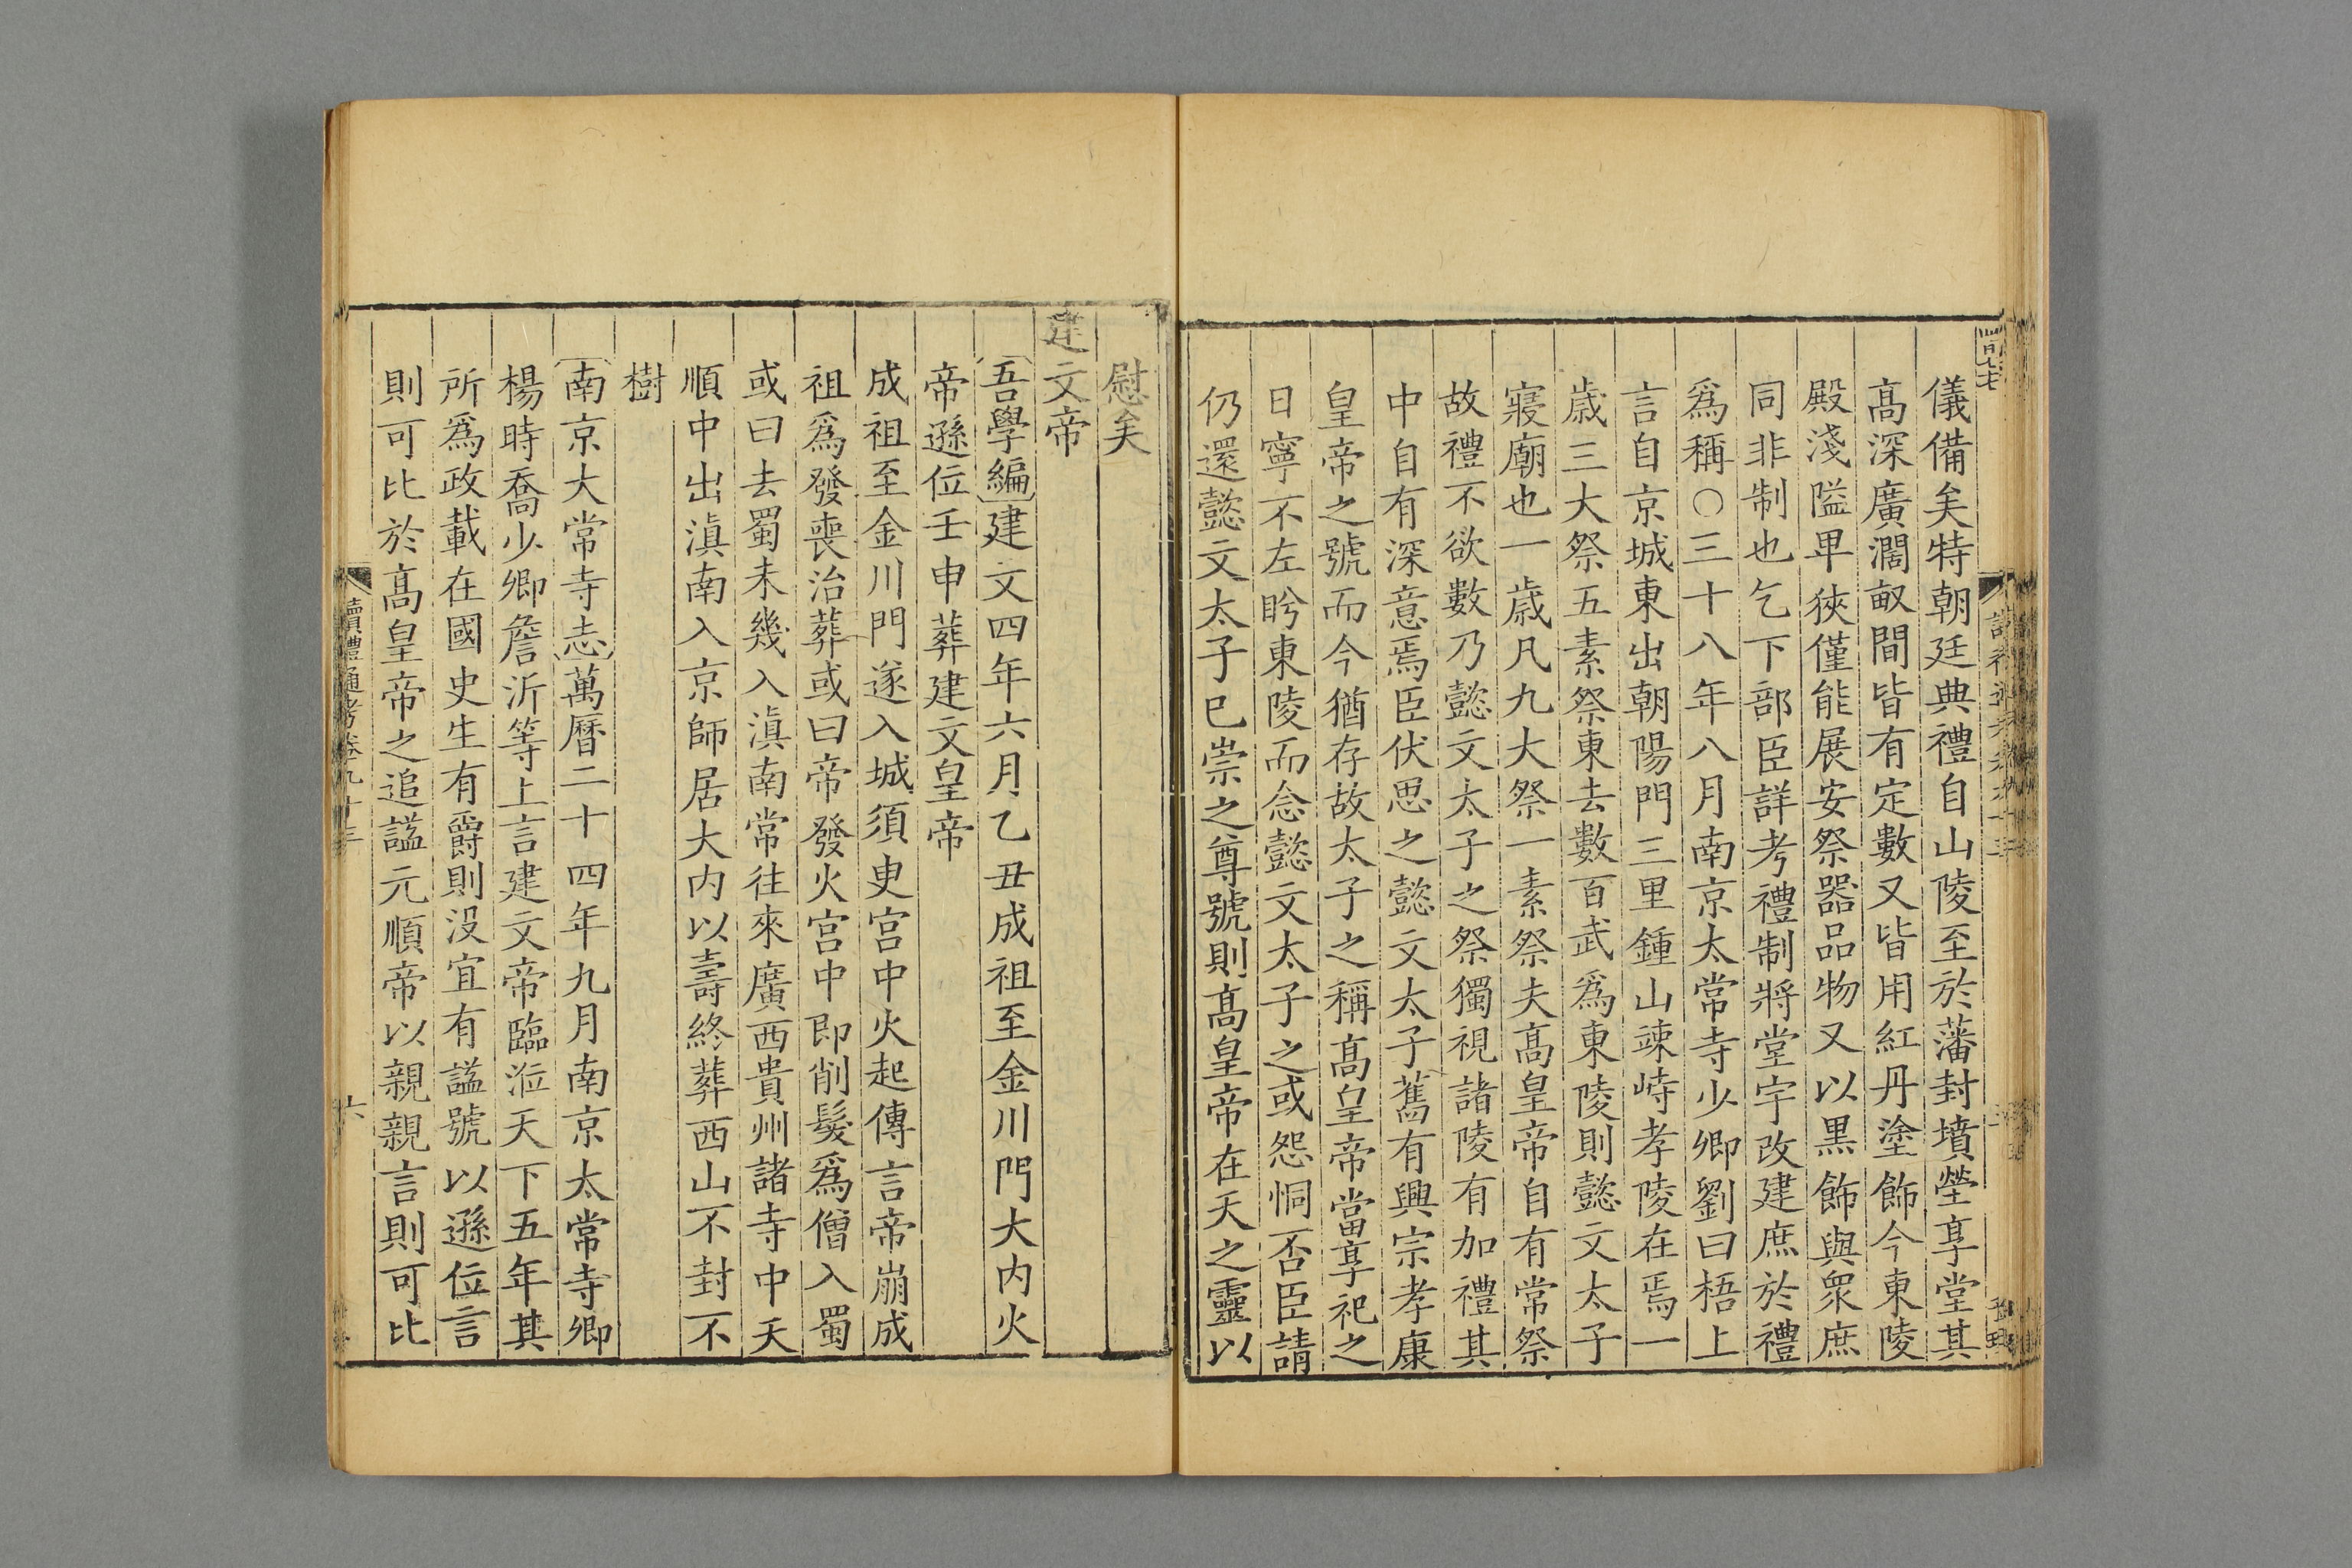 儀備矣特朝廷典禮自山陵至於藩封墳塋享堂其
髙深廣濶畝間皆有定數又皆用紅丹塗飾今東陵
殿淺隘卑狹僅能展安祭器品物又以黒飾與衆庶
同非制也乞下部臣詳考禮制將堂宇改建庶於禮
爲稱○三十八年八月南京太常寺少卿劉曰梧上
言自京城東出朝陽門三里鍾山竦峙孝陵在焉一
歳三大祭五素祭東去數百武爲東陵則懿文太子
寢廟也一歲凡九大祭一素祭夫髙皇帝自有常祭
故禮不欲數乃懿文太子之祭獨視諸陵有加禮其
中自有深意焉臣伏思之懿文太子舊有興宗孝康
皇帝之號而今猶存故太子之稱髙皇帝當享祀之
日寧不左盻東陵而念懿文太子之或怨恫否臣請
仍還懿文太子已崇之尊號則髙皇帝在天之靈以
慰矣
建文帝
〔吾學編〕建文四年六月乙丑成祖至金川門大内火
帝遜位壬申葬建文皇帝
成祖至金川門遂入城須臾宫中火起傳言帝崩成
祖爲發喪治葬或曰帝發火宫中即削髮爲僧入蜀
或曰去蜀未幾入滇南常往來廣西貴州諸寺中天
順中出滇南入京師居大内以壽終葬西山不封不
樹
〔南京大常寺志〕萬曆二十四年九月南京太常寺卿
楊時喬少卿詹沂等上言建文帝臨涖天下五年其
所爲政載在國史生有爵則没宜有謚號以遜位言
則可比於髙皇帝之追謚元順帝以親親言則可比
讀禮通考卷九十三
六